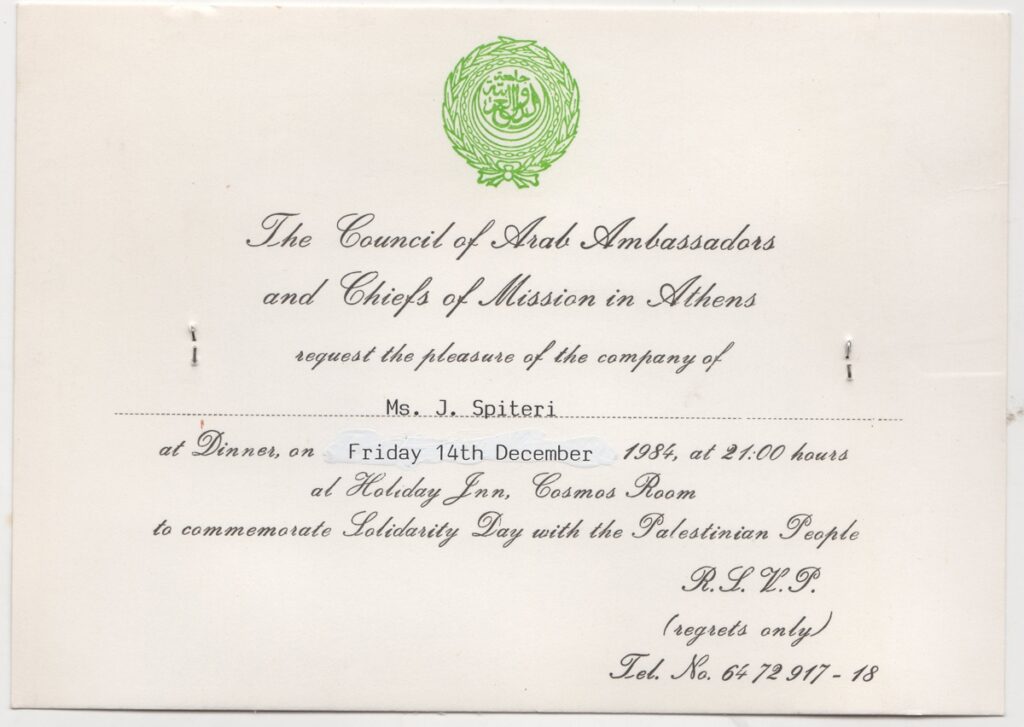 جامعة
الدول
العربية
The Council of Arab Ambassadors
and Chiefs of Mission in Athens
request the pleasure of the company of
Ms. J. Spiteri
at Dinner, on Friday 14th December 1984, at 21:00 hours
at Holiday Inn, Cosmos Room
to commemorate Solidarity Day with the Palestinian People
R.S.V.P.
(regrets only)
Tel. No. 64 72 917 - 18